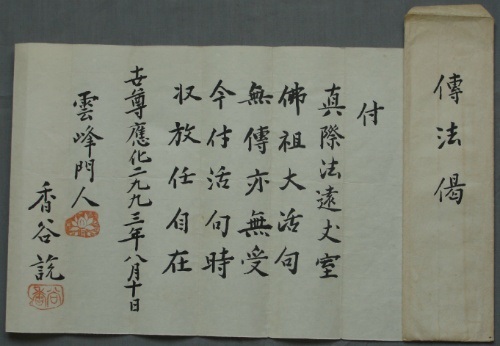 傳法偈
付
真際法遠丈室
佛祖大活句
無傳亦無受
今付活句時
収放任自在
世尊應化二九九三年八月十日
雲峰門人
香谷說
香谷